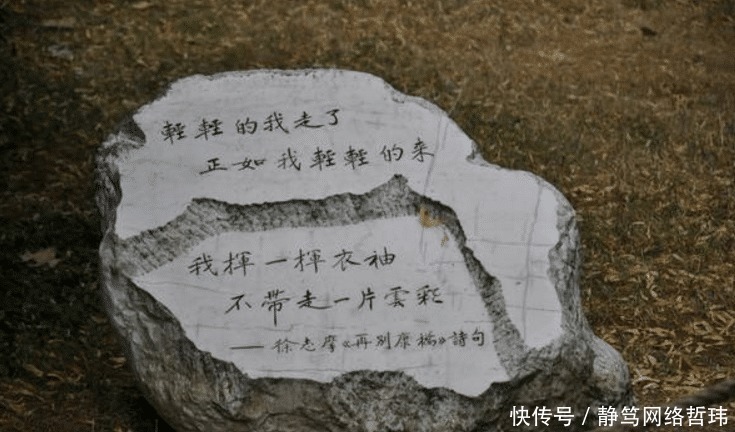 輕輕的我走了
正如我輕輕的来
我揮一揮衣袖
不帶走一片雲彩
——徐志摩《再别康橋》詩句
快传号/静笃网络哲玮